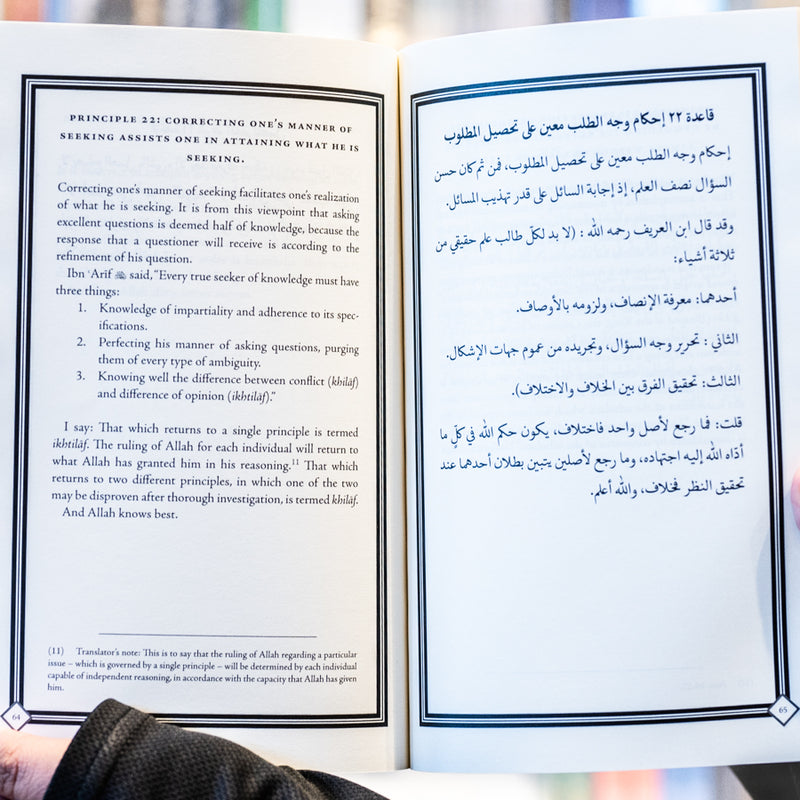 PRINCIPLE 22: CORRECTING ONE'S MANNER OF
SEEKING ASSISTS ONE IN ATTAINING WHAT HE IS
SEEKING.
Correcting one's manner of seeking facilitates one's realization
of what he is seeking. It is from this viewpoint that asking
excellent questions is deemed half of knowledge, because the
response that a questioner will receive is according to the
refinement of his question.
Ibn ʿArif said, "Every true seeker of knowledge must have
three things:
1. Knowledge of impartiality and adherence to its spec-
ifications.
2. Perfecting his manner of asking questions, purging
them of every type of ambiguity.
3. Knowing well the difference between conflict (khilāf)
and difference of opinion (ikhtilāf)."
I say: That which returns to a single principle is termed
ikhtilāf. The ruling of Allah for each individual will return to
what Allah has granted him in his reasoning.11 That which
returns to two different principles, in which one of the two
may be disproven after thorough investigation, is termed khilāf.
And Allah knows best.
(11) Translator's note: This is to say that the ruling of Allah regarding a particular
issue – which is governed by a single principle – will be determined by each individual
capable of independent reasoning, in accordance with the capacity that Allah has given
him.
64
قاعدة ٢٢ إحكام وجه الطلب معين على تحصيل المطلوب
إحكام وجه الطلب معين على تحصيل المطلوب، فمن ثم كان حسن
السؤال نصف العلم، إذ إجابة السائل على قدر تهذيب المسائل.
وقد قال ابن العريف رحمه الله : (لا بد لكلّ طالب علم حقيقي من
ثلاثة أشياء:
أحدهما: معرفة الإنصاف، ولزومه بالأوصاف.
الثاني : تحرير وجه السؤال، وتجريده من عموم جهات الإشكال.
الثالث: تحقيق الفرق بين الخلاف والاختلاف).
قلت: فما رجع لأصل واحد فاختلاف، يكون حكم الله في كلٍّ ما
أدّاه الله إليه اجتهاده، وما رجع لأصلين يتبين بطلان أحدهما عند
تحقيق النظر فخلاف، والله أعلم.
65